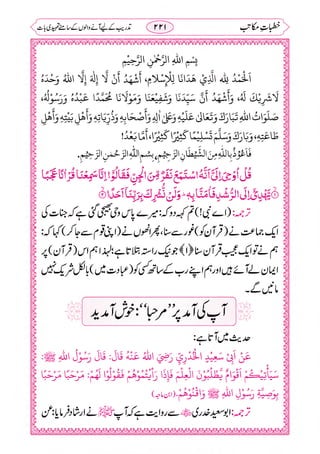 خطباتِ مکاتب ۲۲۱ تدریب کے لیے آنے والوں کے سامنے تمہیدی بات
بِسْمِ اللهِ الرَّحْمٰنِ الرَّحِیْمِ
اَلْحَمْدُ لِلّٰهِ الَّذِیْ هَدَانَا لِلْاِسْلَامِ، وَاَشْهَدُ اَنْ لَّا اِلٰهَ اِلَّا اللهُ وَحْدَهٗ
لَا شَرِیْكَ لَهٗ، وَاَشْهَدُ اَنَّ سَیِّدَنَا وَشَفِیْعَنَا وَمَوْلَانَا مُحَمَّدًا عَبْدُهٗ وَرَسُوْلُهٗ،
صَلَوَاتُ اللهِ تَبَارَكَ وَتَعَالٰی عَلَیْهِ وَعَلٰی اٰلِهٖ وَاَصْحَابِهٖ وَذُرِّیَّاتِهٖ وَاَهْلِ بَیْتِهٖ وَاَهْلِ
طَاعَتِهٖ، وَبَارَكَ وَسَلَّمَ تَسْلِیْمًا كَثِیْرًا كَثِیْرًا، اَمَّا بَعْدُ!
فَاَعُوْذُ بِاللهِ مِنَ الشَّیْطَانِ الرَّجِیْمِ، بِسْمِ اللهِ الرَّحْمٰنِ الرَّحِیْمِ.
قُلْ اُوْحِیَ اِلَیَّ اَنَّهُ اسْتَمَعَ نَفَرٌ مِّنَ الْجِنِّ فَقَالُوْۤا اِنَّا سَمِعْنَا قُرْاٰنًا عَجَبًا ۝
یَّهْدِیْۤ اِلَی الرُّشْدِ فَاٰمَنَّا بِهٖ ؕ وَلَنْ نُّشْرِكَ بِرَبِّنَاۤ اَحَدًا ۝
ترجمہ: (اے نبی!) تم کہہ دو کہ: میرے پاس وحی بھیجی گئی ہے کہ جنات کی
ایک جماعت نے (قرآن کو) غور سے سنا، سو انھوں نے (اپنی قوم سے جاکر) کہا: کہ
ہم نے تو ایک عجیب قرآن سنا (۱) جو نیک راستہ بتاتا ہے؛ لہٰذا ہم اس (قرآن) پر
ایمان لے آئے ہیں اور ہم اپنے رب کے ساتھ کسی کو (عبادت میں) بالکل شریک نہیں
مانیں گے۔
آپ کی آمد پر ’’مرحبا‘‘، خوش آمدید
حدیث میں آتا ہے:
عَنْ اَبِیْ سَعِیْدٍ الْخُدْرِیِّ رَضِیَ اللهُ عَنْهُ قَالَ: قَالَ رَسُوْلُ اللهِ ﷺ:
سَیَأْتِیْكُمْ اَقْوَامٌ یَّطْلُبُوْنَ الْعِلْمَ، فَاِذَا رَاَیْتُمُوْهُمْ فَقُوْلُوْا لَهُمْ: مَرْحَبًا مَرْحَبًا
بِوَصِیَّةِ رَسُوْلِ اللهِ ﷺ وَاقْنُوْهُمْ. (ابن ماجہ)
ترجمہ: ابو سعید خدری ؓ سے روایت ہے کہ آپ ﷺ نے ارشاد فرمایا: عن